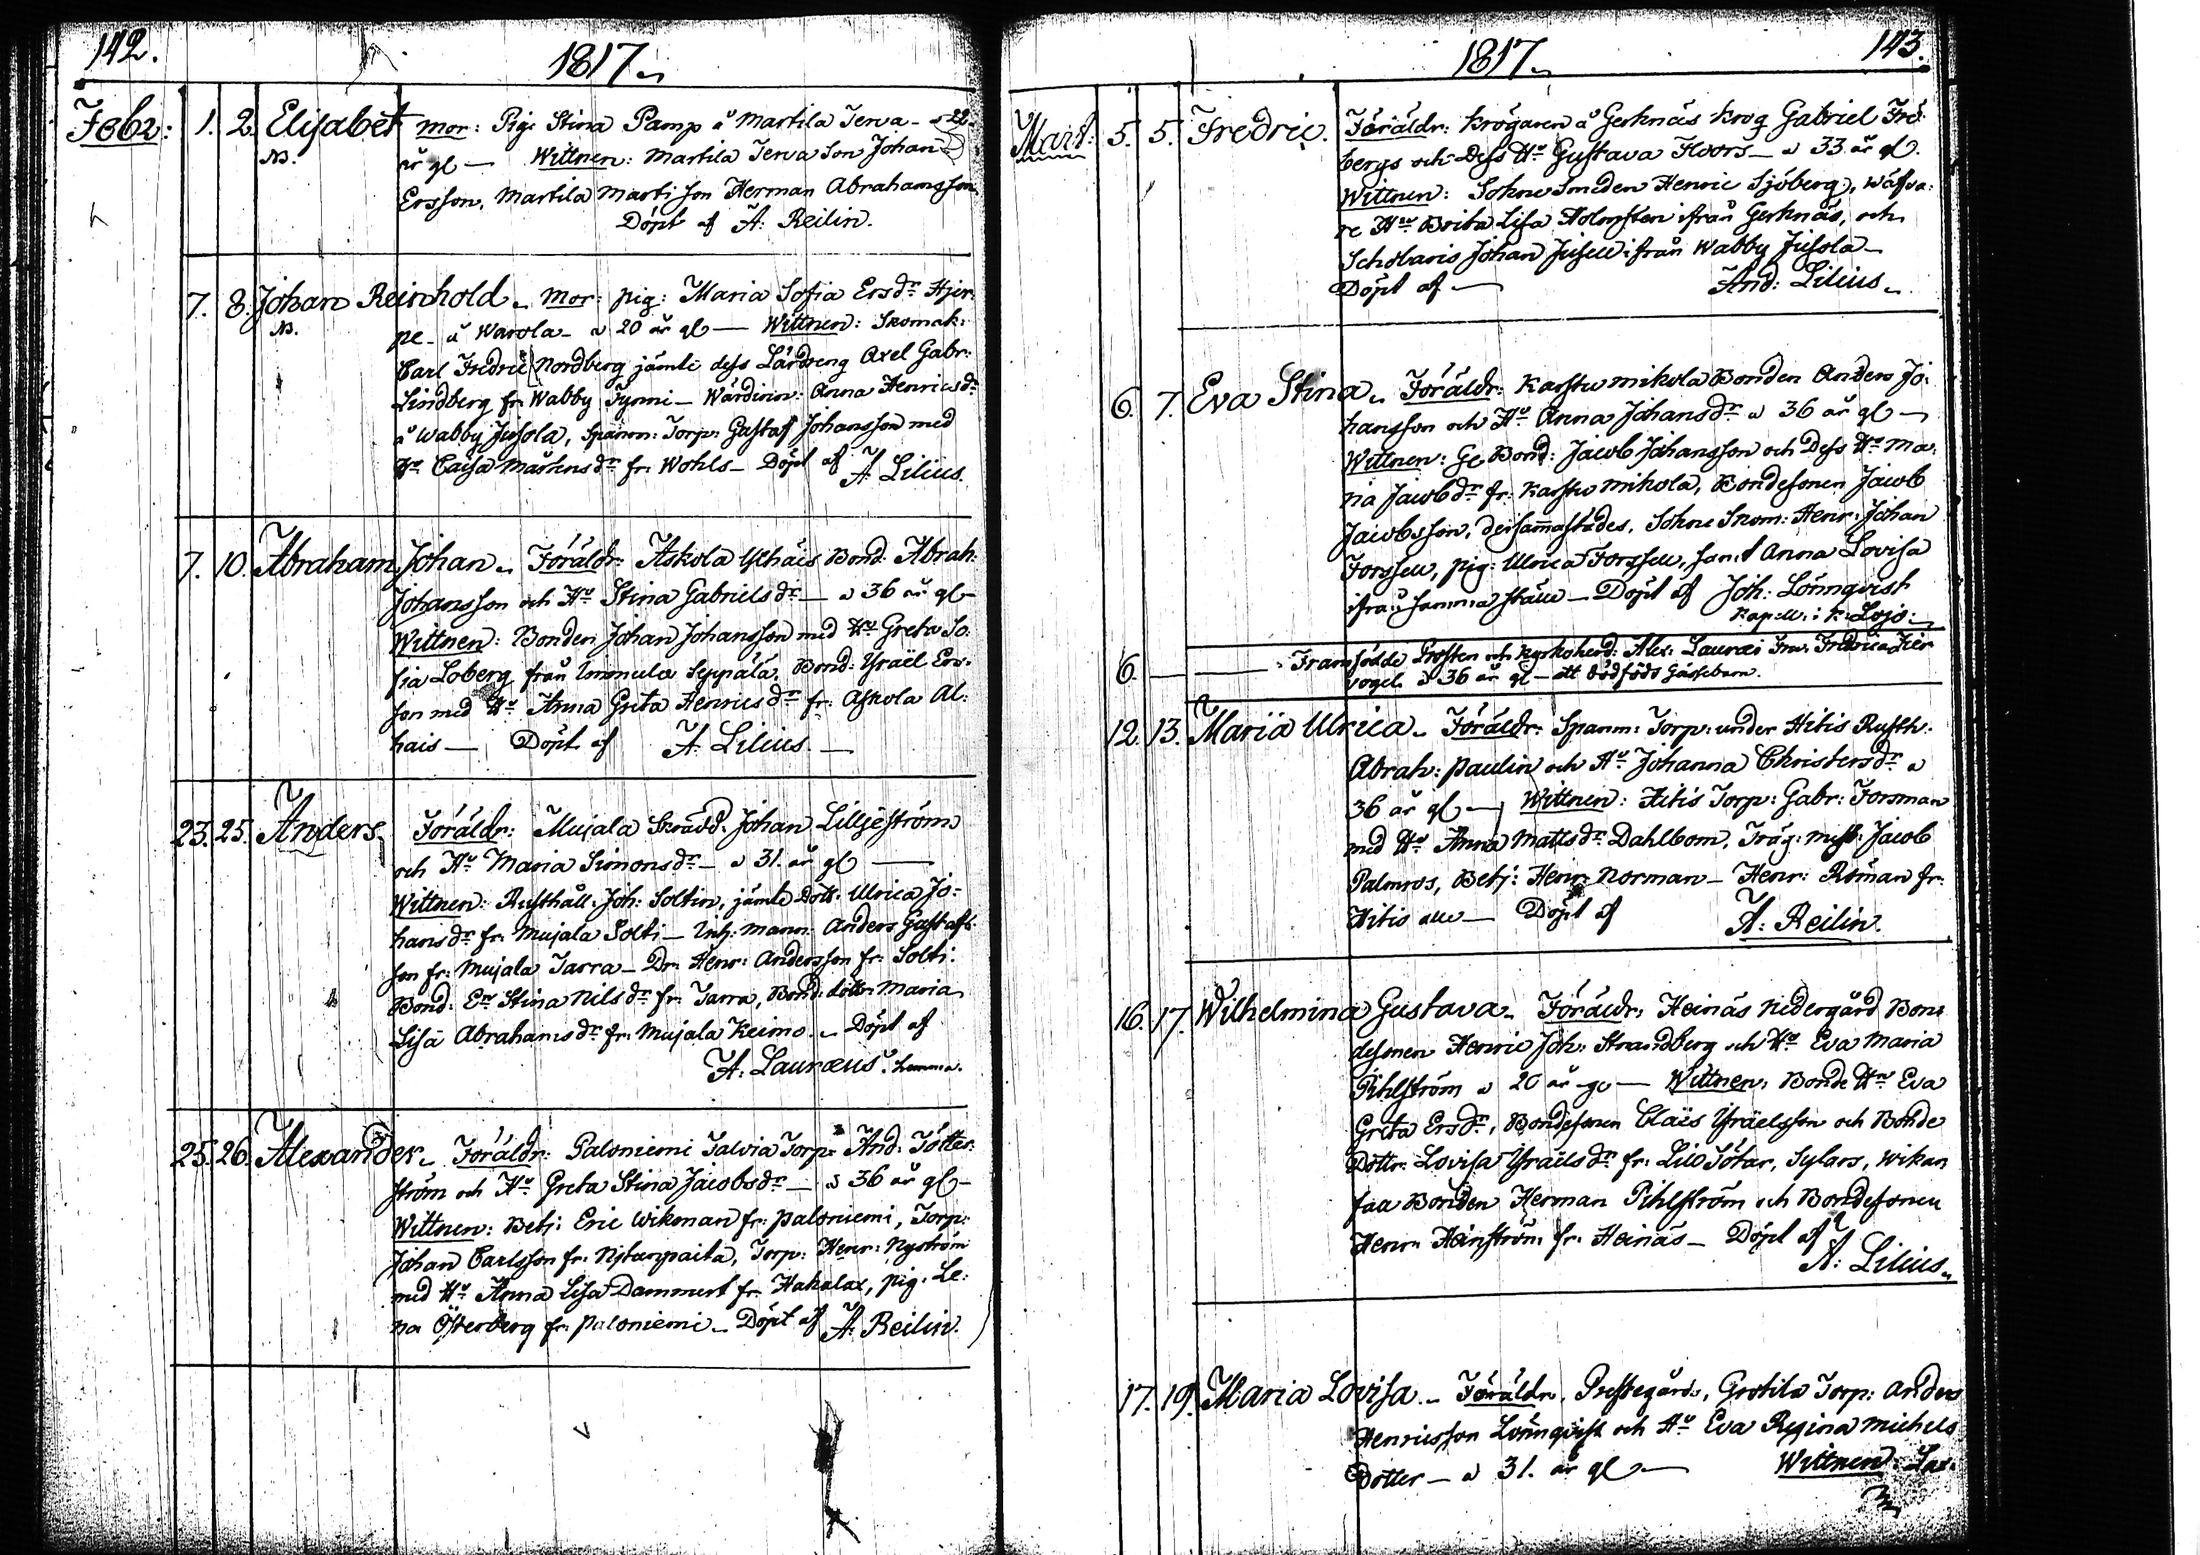 142.
1817.
Febr: 1. 2. Elisabet mor: Pig: Stina Pamp å Martila Jerva - a 22.
NB. år gl — Wittnen: Martila Jerva Son Johan
Ersson, Martila Marti Son Herman Abrahamsson
Döpt af A: Reilin.
7. 8. Johan Reinhold. mor: pig: Maria Sofia Ersdr Hjer-
NB. pe - å Warola - a 20 år gl — Wittnen: Skomak:
Carl Fredric Nordberg jämte dess Lärdreng Axel Gabr:
Lindberg fr: Wabby Tynni - Wärdinn: Anna Henricsdr
å Wabby Jusola, Spanm: Torp: Gustaf Johansson med
Hu Caisa Mårtensdr fr: Wohls - Döpt af A: Lilius.
7. 10. Abraham Johan. Föräldr: Askola Bond: Abrah:
Johansson och Hu Stina Gabrielsdr - a 36 år gl -
Wittnen: Bonden Johan Johansson med Hu Greta So-
fia Loberg från Immula Seppälä, Bond: Ysraël Ers-
son med Hu Anna Greta Henricsdr fr: Askola Al-
hais — Döpt af A: Lilius. —
23. 25. Anders. Föräldr: Mujala Skrädd: Johan Lilljeström
och Hu Maria Simonsdr - a 31. år gl —
Wittnen: Rusthåll: Joh: Soltin, jämte Dott: Ulrica Jo-
hansdr fr: Mujala Solti - Inh: mann: Anders Gustafs-
son fr: Mujala Jarra - Dr: Henr: Andersson fr: Solti.
Bond: Stina Nilsdr fr: Jarra, Bond: dott: Maria
Lisa Abrahamsdr fr: Mujala Keimo. - Döpt af
A: Lauræus.
25. 26. Alexander. Föräldr: Paloniemi Torp: And: Tötter-
ström och Hu Greta Stina Jacobsdr - a 36 år gl -
Wittnen: Betj: Eric Wikman fr: paloniemi, Torp:
Johan Carlsson fr: Torp: Henr: Nyström
med Hu Anna Lisa Dammert fr: Hakalax, pig: Le-
na Österberg fr: paloniemi. - Döpt af A: Reilin.
1817. 143.
Mart: 5. 5. Fredric. Föräldr: Krögaren å Gerknäs krog Gabriel Frö-
bergs och Dess Hu Gustava Floors - a 33 år gl.
Wittnen: Sokne Smeden Henric Sjöberg,
Hu Brita Lisa Holmsten ifrån Gerknäs, och
Scholaris Johan ifrån Wabby Jusola -
Döpt af — And: Lilius.
6. 7. Eva Stina. Föräldr: Karstu mikola Bonden Anders Jo-
hansson och Hu Anna Johansdr a 36 år gl —
Wittnen: Bond: Jacob Johansson och Dess Hu Ma-
ria Jacobdr fr: Karstu mikola, Bondesonen Jacob
Jacobsson, dersammastädes. Sokne Skom: Henr: Johan
Forssell, pig: Ulrica Forssell, samt Anna Lovisa
ifrån samma ställe — Döpt af Joh: Lönnqvist
Kapell: i K: Lojo:
6. — — Framfödde Prosten och Kyrkoherd: Alex: Lauræi Fru: Fredrica
vogel a 36 år gl — ett dödfödt Gåssebarn.
12. 13. Maria Ulrica. Föräldr: Spanm: Torp: under Hitis Rusth:
Abrah: Paulin och Hu Johanna Christersdr a
36 år gl — Wittnen: Hitis Torp: Gabr: Forsman
med Hu Anna Mattsdr Dahlbom, Träg: mäst: Jacob
Palmros, Betj: Henr: Norman - Henr: Röman fr:
Hitis alle — Döpt af A: Reilin.
16. 17. Wilhelmina Gustava. Föräldr: Heinäs Nedergård Bon-
desonen Henric Joh: Strandberg och Hu Eva Maria
Pihlström a 20 år gl — Wittnen: Bonde Hu Eva
Greta Ersdr, Bondesonen Claës Ysraëlsson och Bonde
Dottr: Lovisa Ysraëlsdr fr: Lill Sötar, Sylars, Wikan
faa Bonden Herman Pihlström och Bondesonen
Henr: Heinström fr: Heinäs - Döpt af
A: Lilius.
17. 19. Maria Lovisa. - Föräldr: Prestegårds, Grotila Torp: Anders
Henricsson Lönnqvist och Hu Eva Regina Michels
Dotter - a 31. år gl — Wittnen: